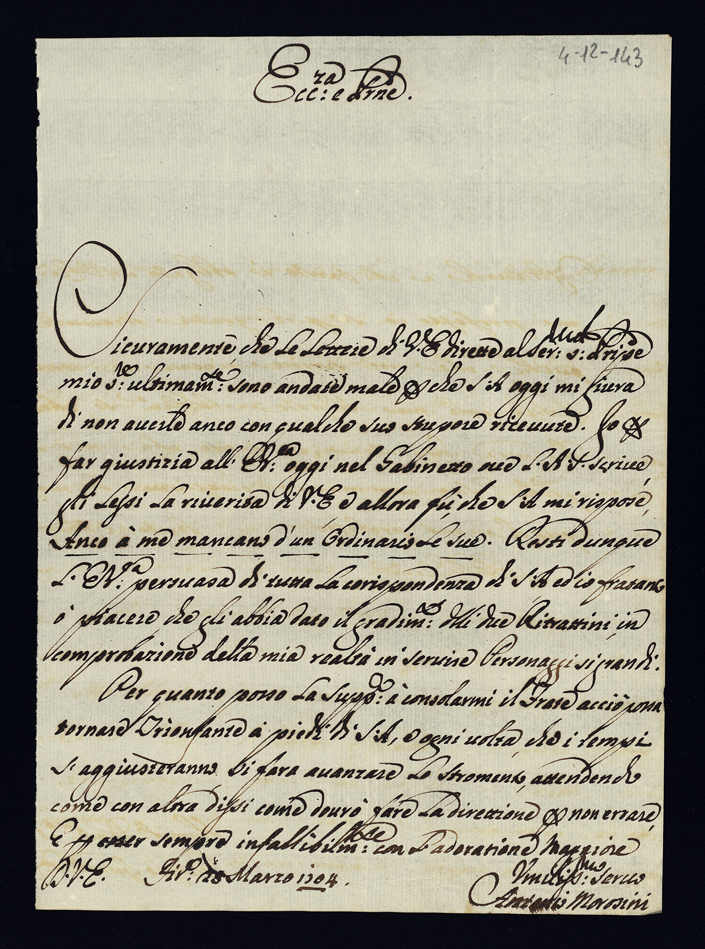 4-12-143
Ecc:ra e Prne.
Sicuramente che Le Lettere di V.E dirette al Ser: s:
mio s:re ultimam:te sono andate male che S.A oggi mi giura
di non averle anco con qualche suo stupore ricevute. Io
far giustizia all' E.V:ra oggi nel Gabinetto ove S.A.S. scrive,
gli Lessi La riverita di V.E e allora fù che S.A mi rispose,
Anco à me mancano d'un Ordinario Le sue. Resti dunque
L. E.V:ra persuasa di tutta La corispondenza di S.A ed io fratanto
ò piacere che gli abbia dato il gradim:to delli due Ritrattini, in
comprobazione della mia realtà in servire Personaggi si grandi.
Per quanto posso La supp:co à consolarmi il Frate acciò possa
tornare Trionfante à piedi di S.A, e ogni volta, che i tempi
S'aggiusteranno si fara avanzare Lo stromento, attendendo
come con altra dissi come dovrò fare La direzione non errare,
E esser sempre infallibilm:te con L'adoratione Maggiore
D.V.E. Marzo 1704.
Umiliss:mo Servo
Antonio Morosini